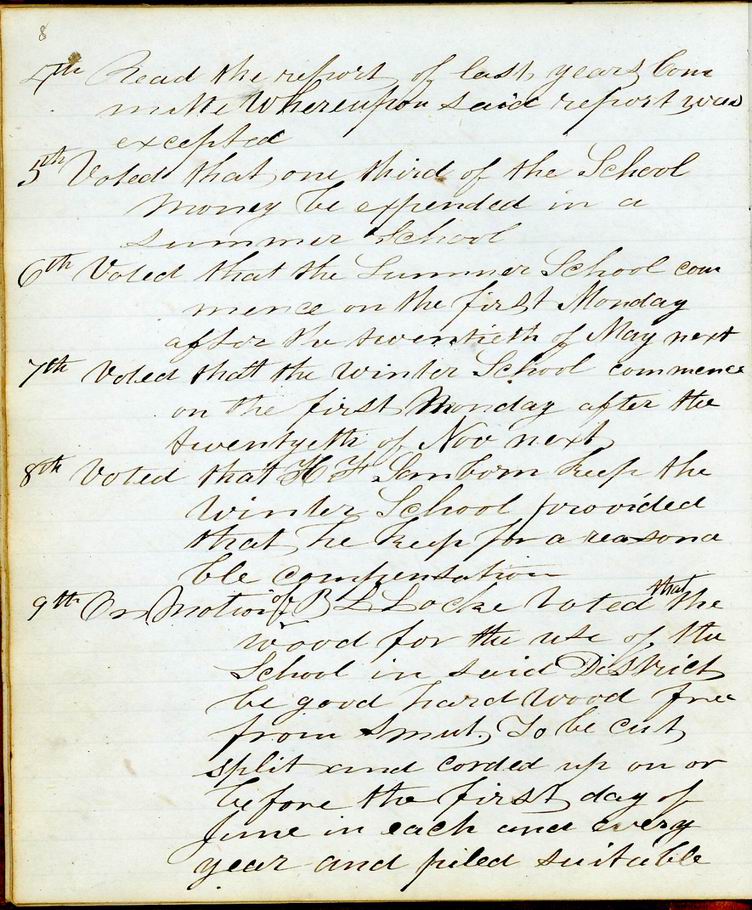 8
4th Read the report of last years Com
mitte Whereupon said report was
excepted
5th Voted that one third of the School
Money be expended in a
Summer School
6th Voted that the Summer School com
mence on the first Monday
after the twentieth of May next
7th Voted thatt the Winter School commence
on the first Monday after the
twentyeth of Nov next
8th Voted that H F Sanborn keep the
Winter School provided
that he keep for a reasona
ble compensation
9th On Motion of B L Locke Voted that the
wood for the use of the
School in said District
be good hard wood free
from smut, To be cut,
split and corded up on or
before the first day of
June in each and every
year and piled suitable